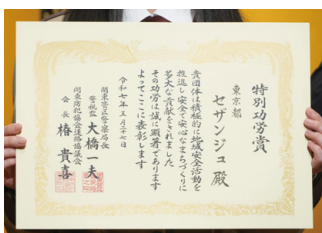 特別功労賞
東京都
セザンジュ殿
貴団体は積極的に地域安全活動を
推進し安全で安心なまちづくりに
多大な貢献をされました
その功労は誠に顕著であります
よってここに表彰します
令和七年三月二十七日
関東管区警察局長
警視監 大橋一夫
関東防犯協会連絡協議会
会長 椿貴喜